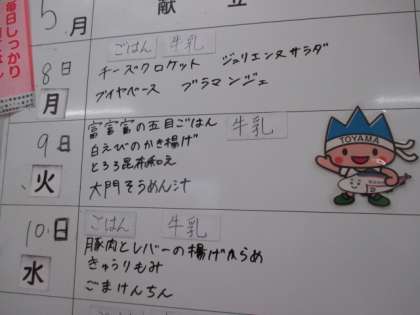 毎日しっかり
5月
献立
8日
月
ごはん 牛乳
チーズクロケット ジュリエンヌサラダ
ブイヤベース ブラマンジェ
9日
火
富富富の五目ごはん 牛乳
白えびのかき揚げ
とろろ昆布和え
大門そうめん汁
TOYAMA
10日
水
ごはん 牛乳
豚肉とレバーの揚げからめ
きゅうりもみ
ごまけんちん